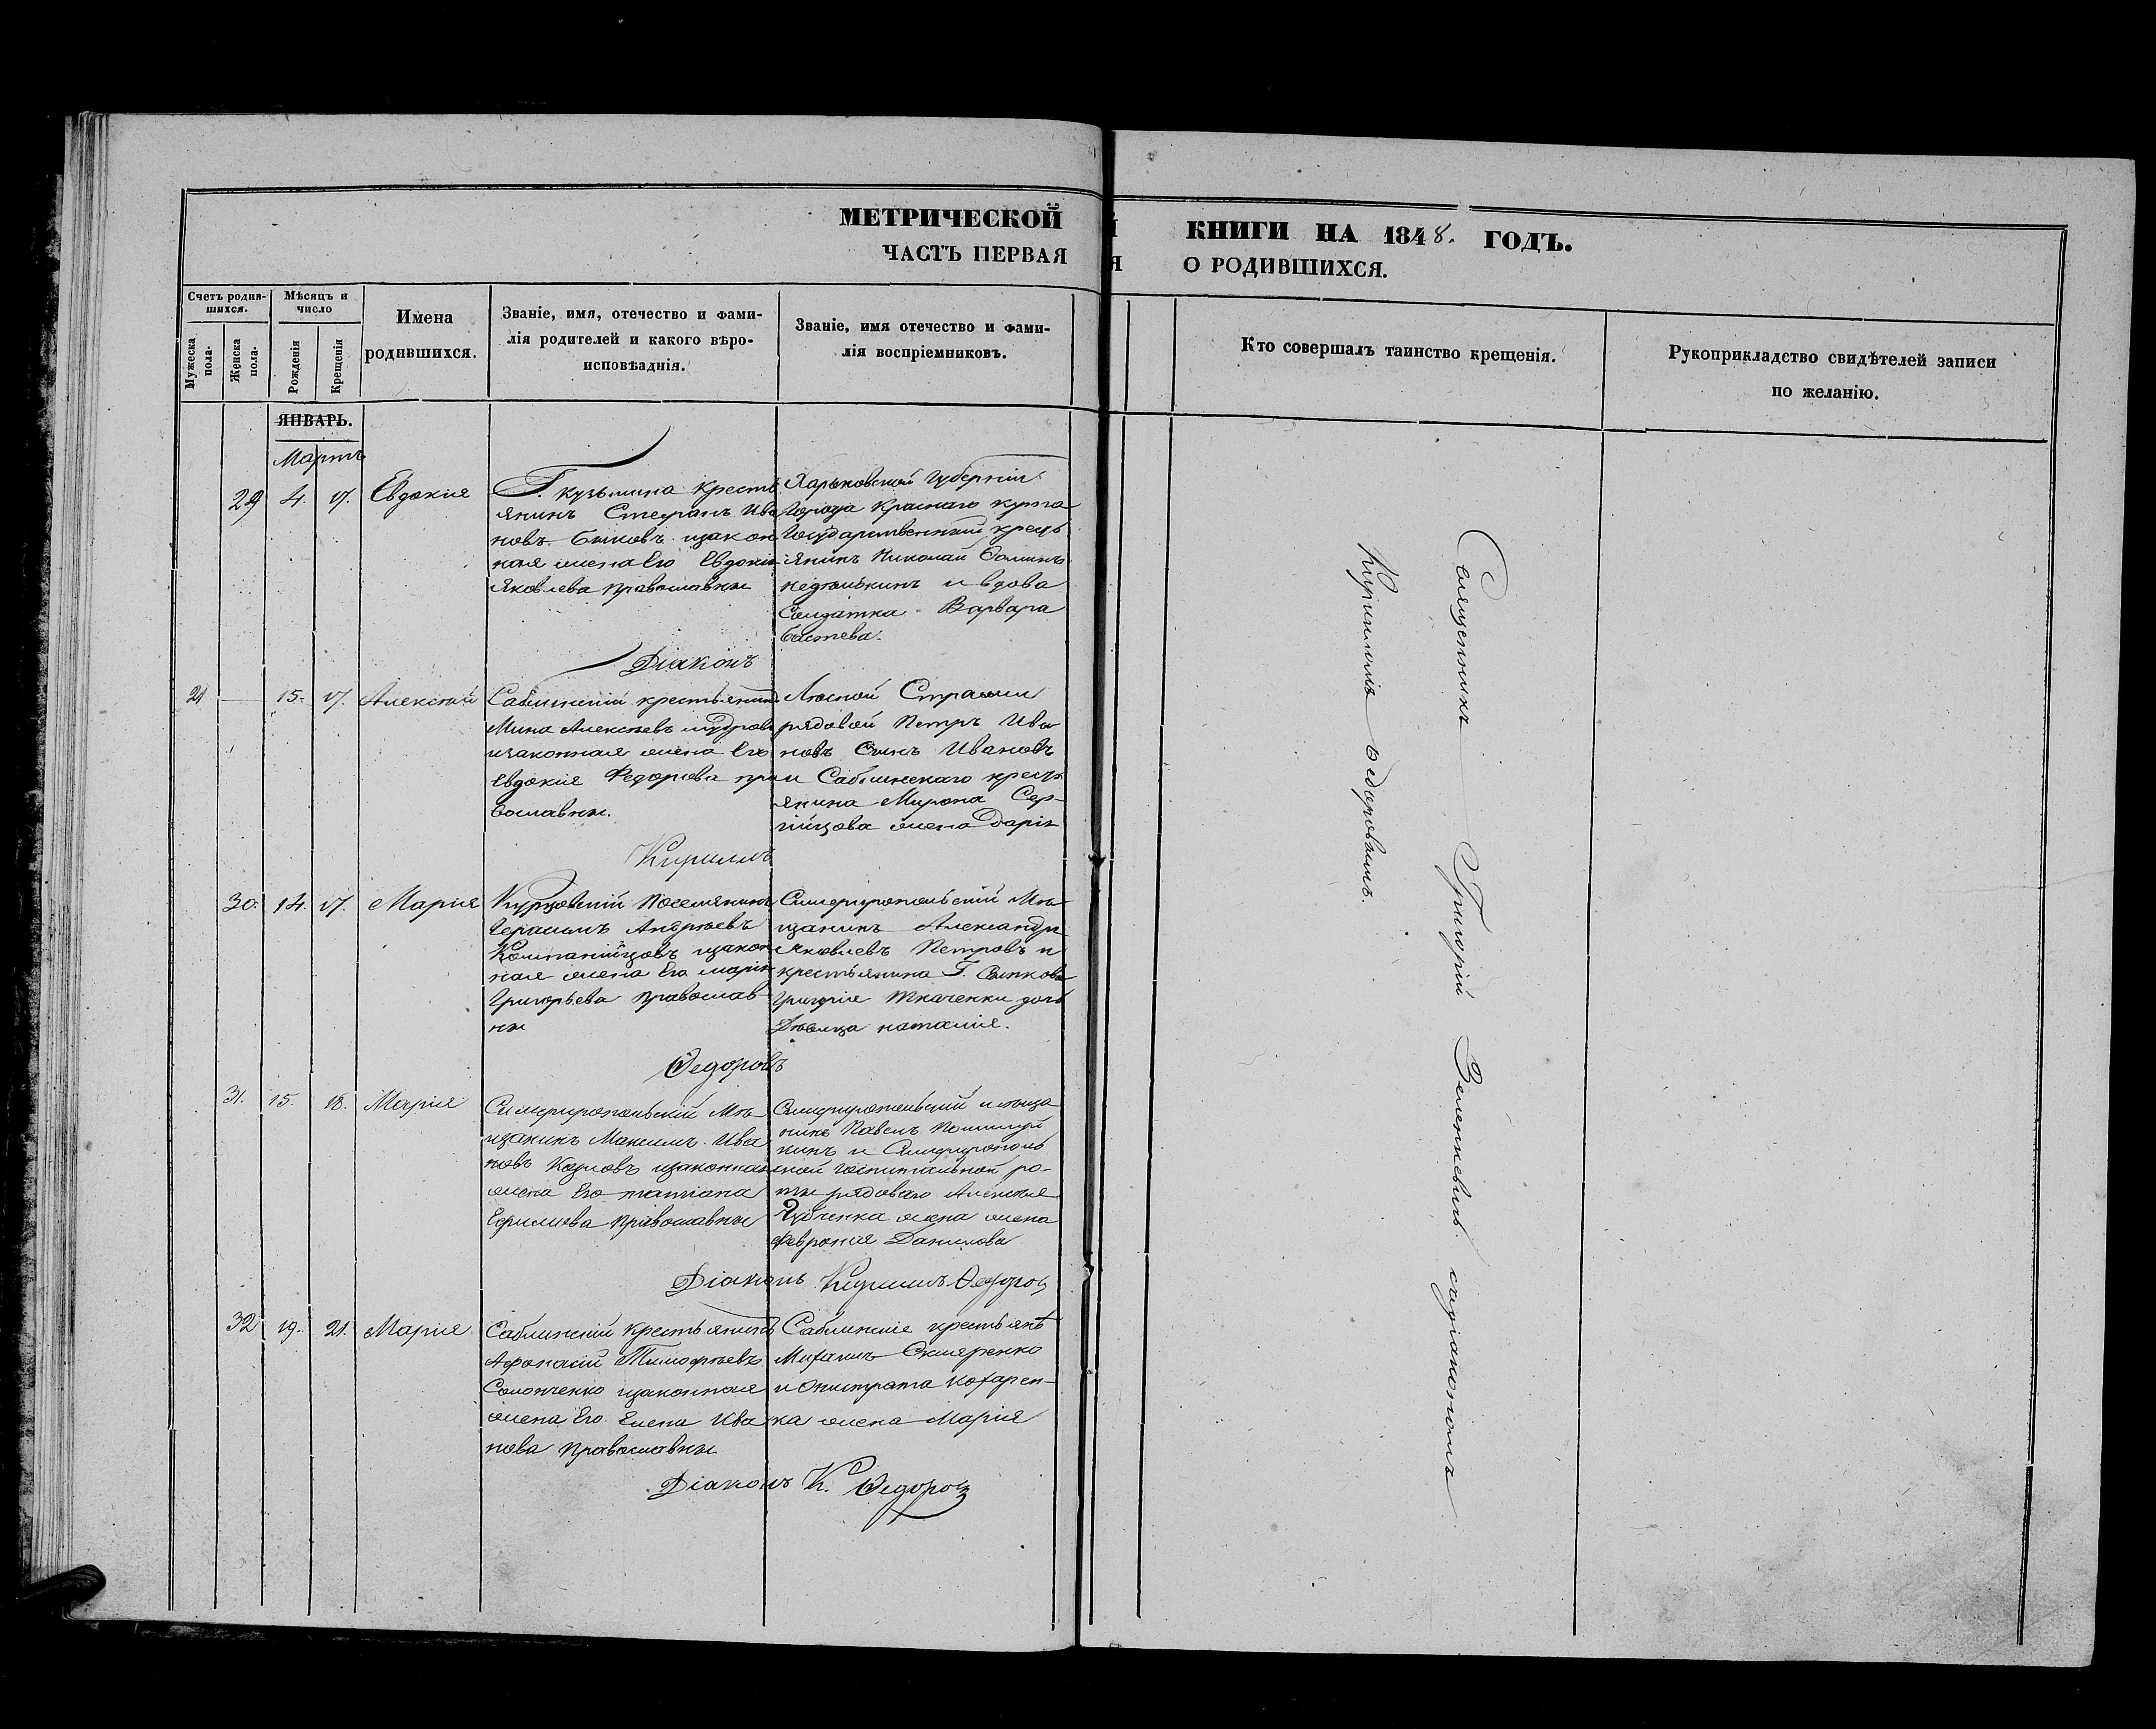 МЕТРИЧЕСКОЙ КНИГИ НА 1848. ГОДЪ.
ЧАСТЬ ПЕРВАЯ О РОДИВШИХСЯ.
Счетъ родив-
шихся.
Мужеска
пола.
Женска
пола.
Мѣсяцъ и
число
Рожденія
Крещенія
Имена
родившихся.
Званіе, имя, отечество и фами-
лія родителей и какого вѣро-
исповѣаднія.
Званіе, имя отечество и фами-
лія воспріемниковъ.
Кто совершалъ таинство крещенія.
Рукоприкладство свидѣтелей записи
по желанію.
ЯНВАРЬ.
Мартъ
29 4. 17. Евдокія
Г. Кузьмина кресть
янинъ Стефанъ Ива
новъ Быковъ изакон
ная жена Его Евдокія
Яковлева православны
Харьковской Губерніи
Города Краснаго кута
Государственный кресть
янинъ Николай
и вдова
Солдатка Варвара
Діаконъ
21 15. 17. Алексѣй
Саблинскій крестьянинъ
Мина Алексѣевъ
изаконная жена Его
Евдокія Федорова пра
вославны.
рядовой Петръ Ива
новъ Сынъ Ивановъ
и Саблинскаго кресть
янина Мирона Сер-
жена Дарія
Кирилъ
30. 14. 17. Марія
Курцовскій Поселянинъ
Герасимъ Андреевъ
Компанійцовъ изакон
ная жена Его марія
Григорьева православ
ны
Симферопольскій Мѣ
щанинъ Александръ
Яковлевъ Петровъ и
крестьянина Г.
Григорія Ткаченки дочь
Дѣвица наталія.
Федоровъ
31. 15. 18. Марія
Симферопольскій Мѣ-
щанинъ Максимъ Ива
новъ Козловъ изаконная
жена Его татіана
Ефимова православны
Симферопольскій мѣща
нинъ Павелъ
и Симферополь
ской госпитальной ро-
ты рядоваго Алексѣя
жена жена
Февронія Данилова
Діаконъ Кирилъ Федоровъ
32 19. 21. Марія
Саблинскій Крестьянинъ
Афонасій Тимофѣевъ
Солонченко изаконная
жена Его Елена Ива
нова православны
Саблинскіе крестьянѣ
Михаилъ
и
ка жена Марія
Діаконъ К. Федоровъ
Священникъ Григорій Зеленкевичъ съдіакономъ
Кириломъ Федоровымъ.